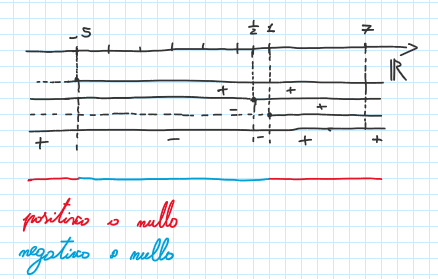 -5 1/2 1 7
ℝ
+ +
- +
+ - - + +
positivo o nullo
negativo o nullo